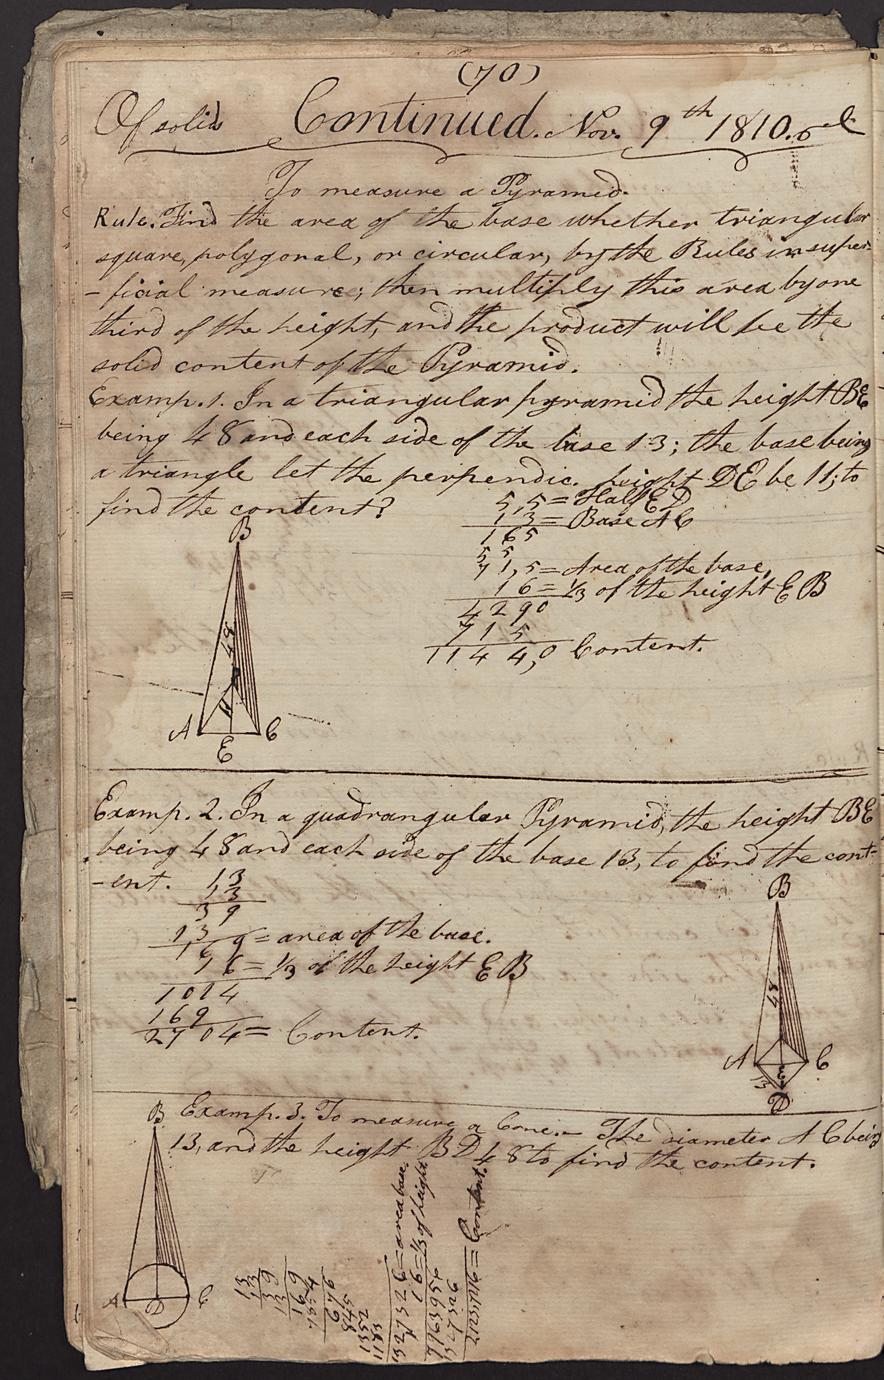 (70)
Of solids Continued. Nov. 9th 1810.
To measure a Pyramid.
Rule. Find the area of the base whether triangular
square, polygonal, or circular, by the Rules in super-
-ficial measure; then multiply this area by one
third of the height, and the product will be the
solid content of the Pyramid.
Examp. 1. In a triangular pyramid the height BE
being 48 and each side of the base 13; the base being
a triangle let the perpendic. height DE be 11; to
find the content?
5,5 = Half ED
13 = Base AC
165
55
71,5 = Area of the base,
16 = 1/3 of the height EB
4290
715
1144,0 Content.
B
48
11
A C
E
Examp. 2. In a quadrangular Pyramid, the height BE
being 48 and each side of the base 13, to find the cont-
-ent. 13
13
39
13
169 = area of the base.
16 = 1/3 of the height EB
1014
169
2704 = Content.
B
48
A E C
13
D
Examp. 3. To measure a Cone. The diameter AC being
13, and the height BD 48 to find the content.
B
A D C
13
13
39
13
169
169
= area base.
= 1/3 of height
= Content.